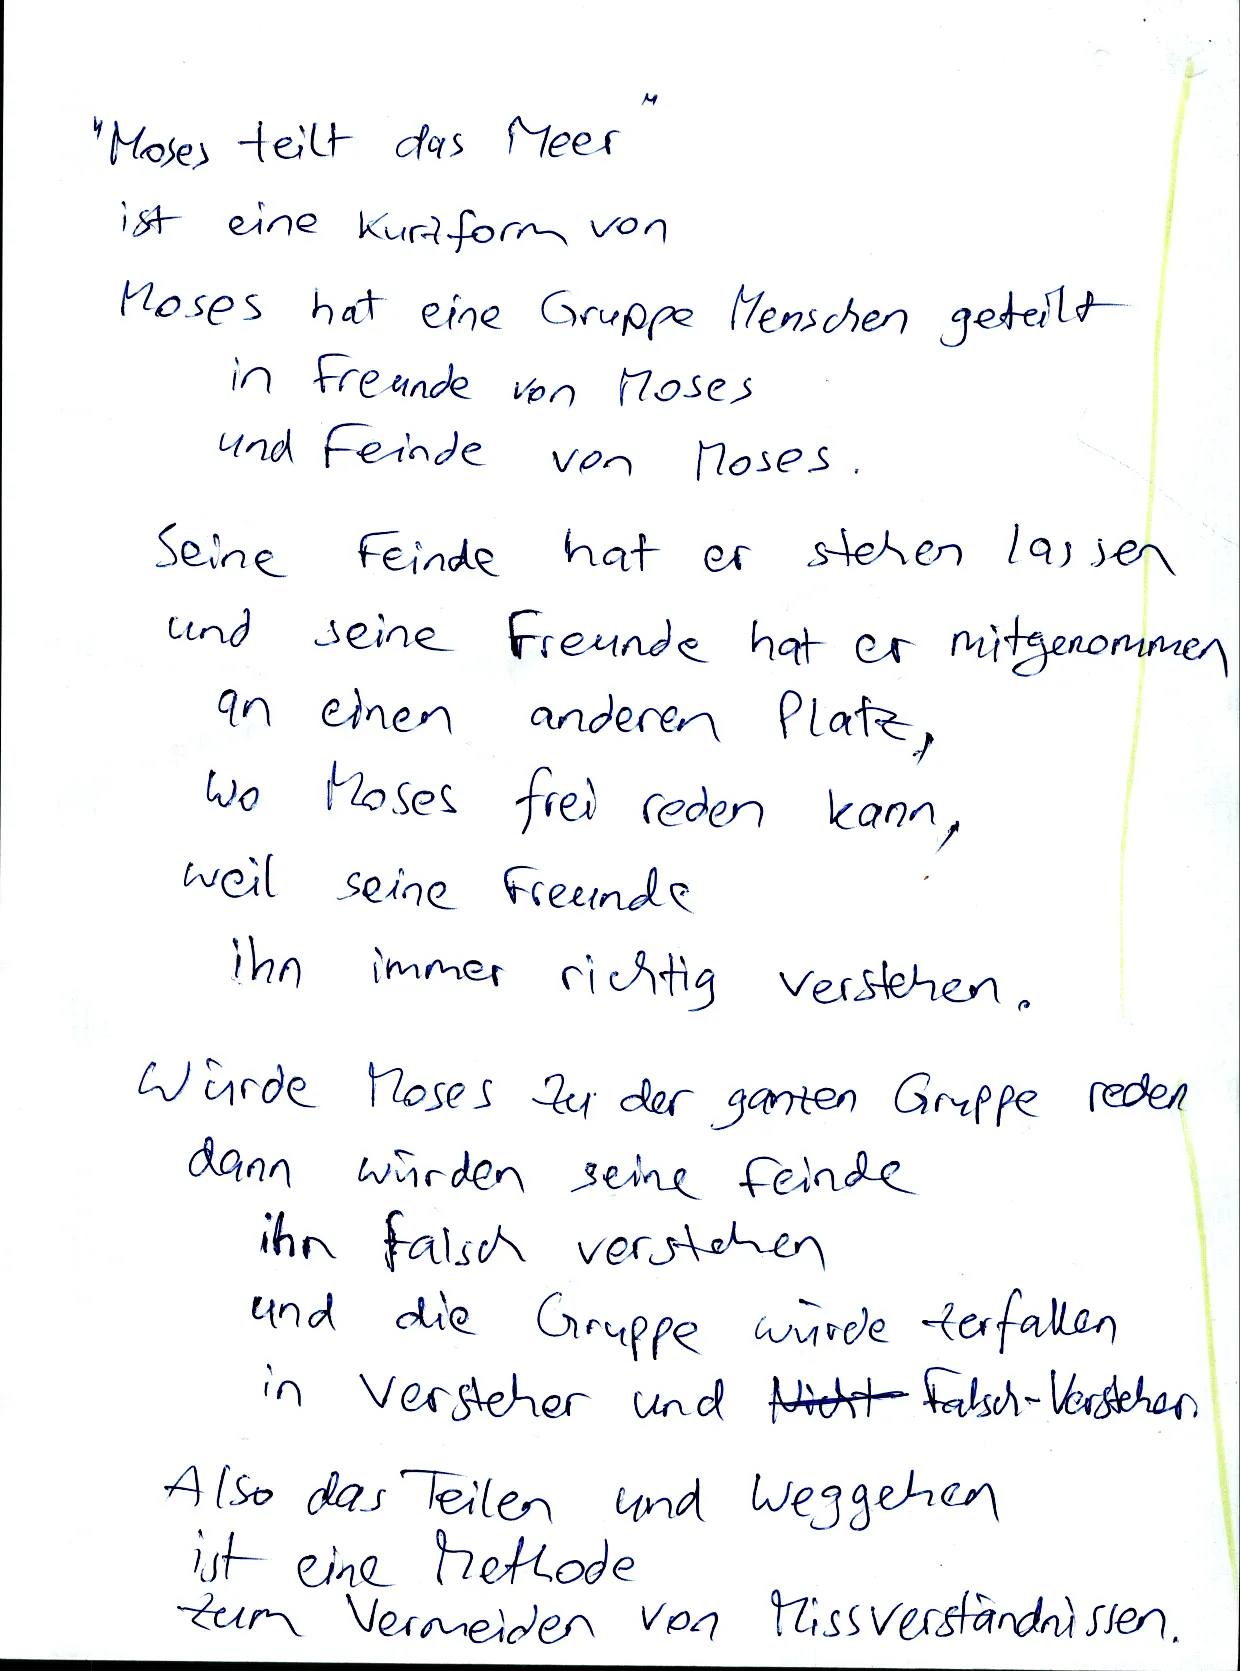 "Moses teilt das Meer"
ist eine Kurzform von
Moses hat eine Gruppe Menschen geteilt
in Freunde von Moses
und Feinde von Moses.
Seine Feinde hat er stehen lassen
und seine Freunde hat er mitgenommen
an einen anderen Platz,
wo Moses frei reden kann,
weil seine Freunde
ihn immer richtig verstehen.
Würde Moses zu der ganzen Gruppe reden
dann würden seine Feinde
ihn falsch verstehen
und die Gruppe würde zerfallen
in Versteher und Nicht Falsch-Versteher
Also das Teilen und Weggehen
ist eine Methode
zum Vermeiden von Missverständnissen.